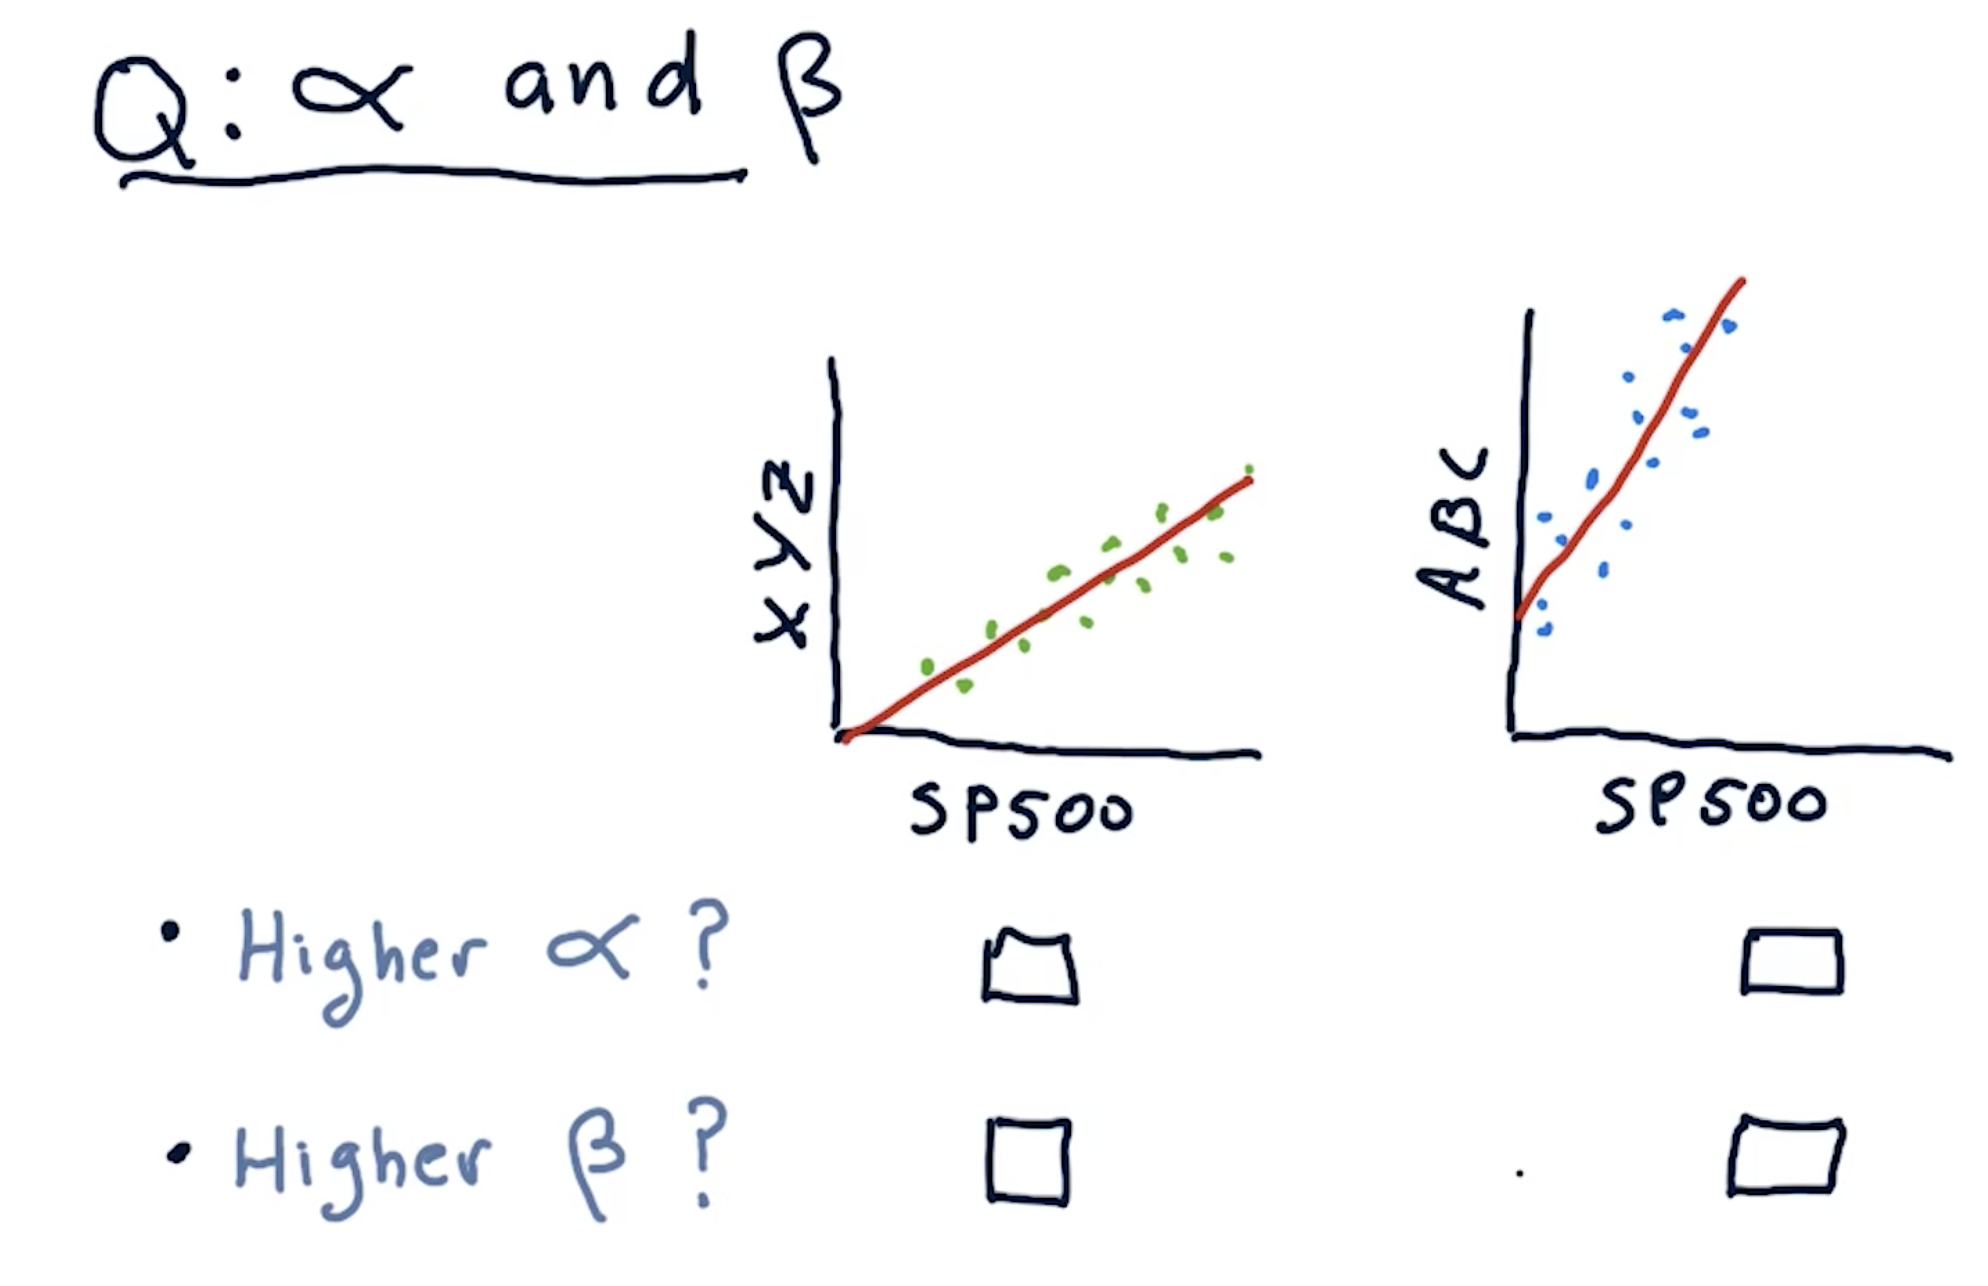 Q: α and β
XYZ
ABC
SP500
SP500
• Higher α ?
• Higher β ?